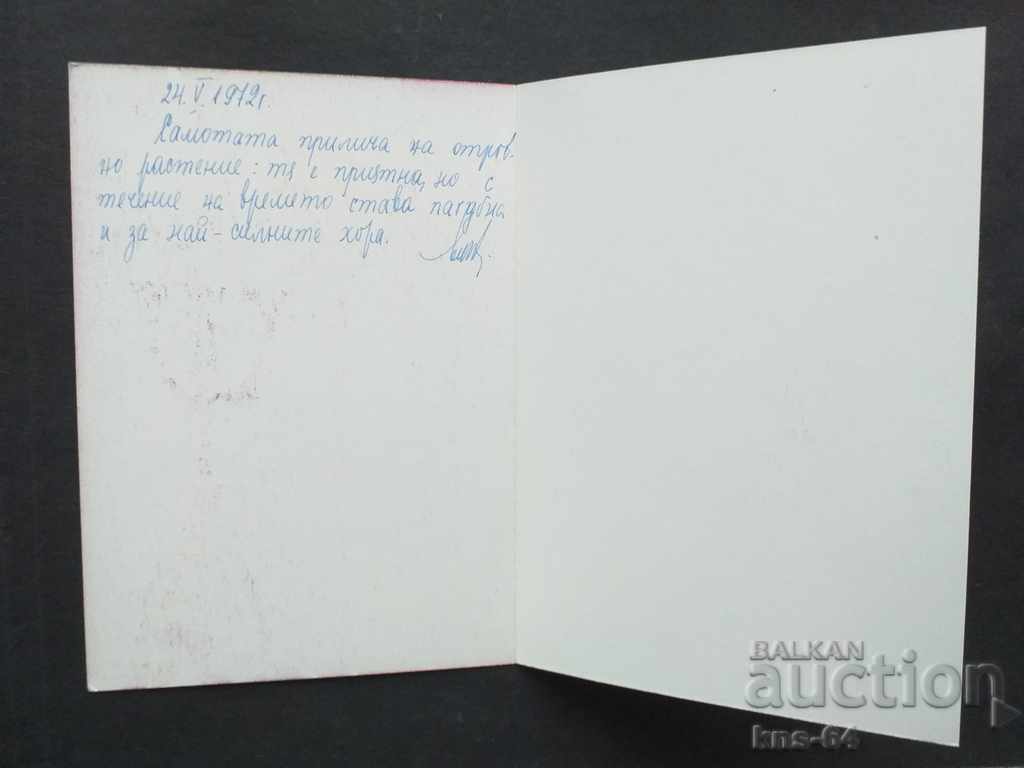 24. V. 1972г.
Самотата прилича на отров-
но растение: тя е приятна, но с
течение на времето става пагубна
и за най-силните хора.
BALKAN
auction
kns-64